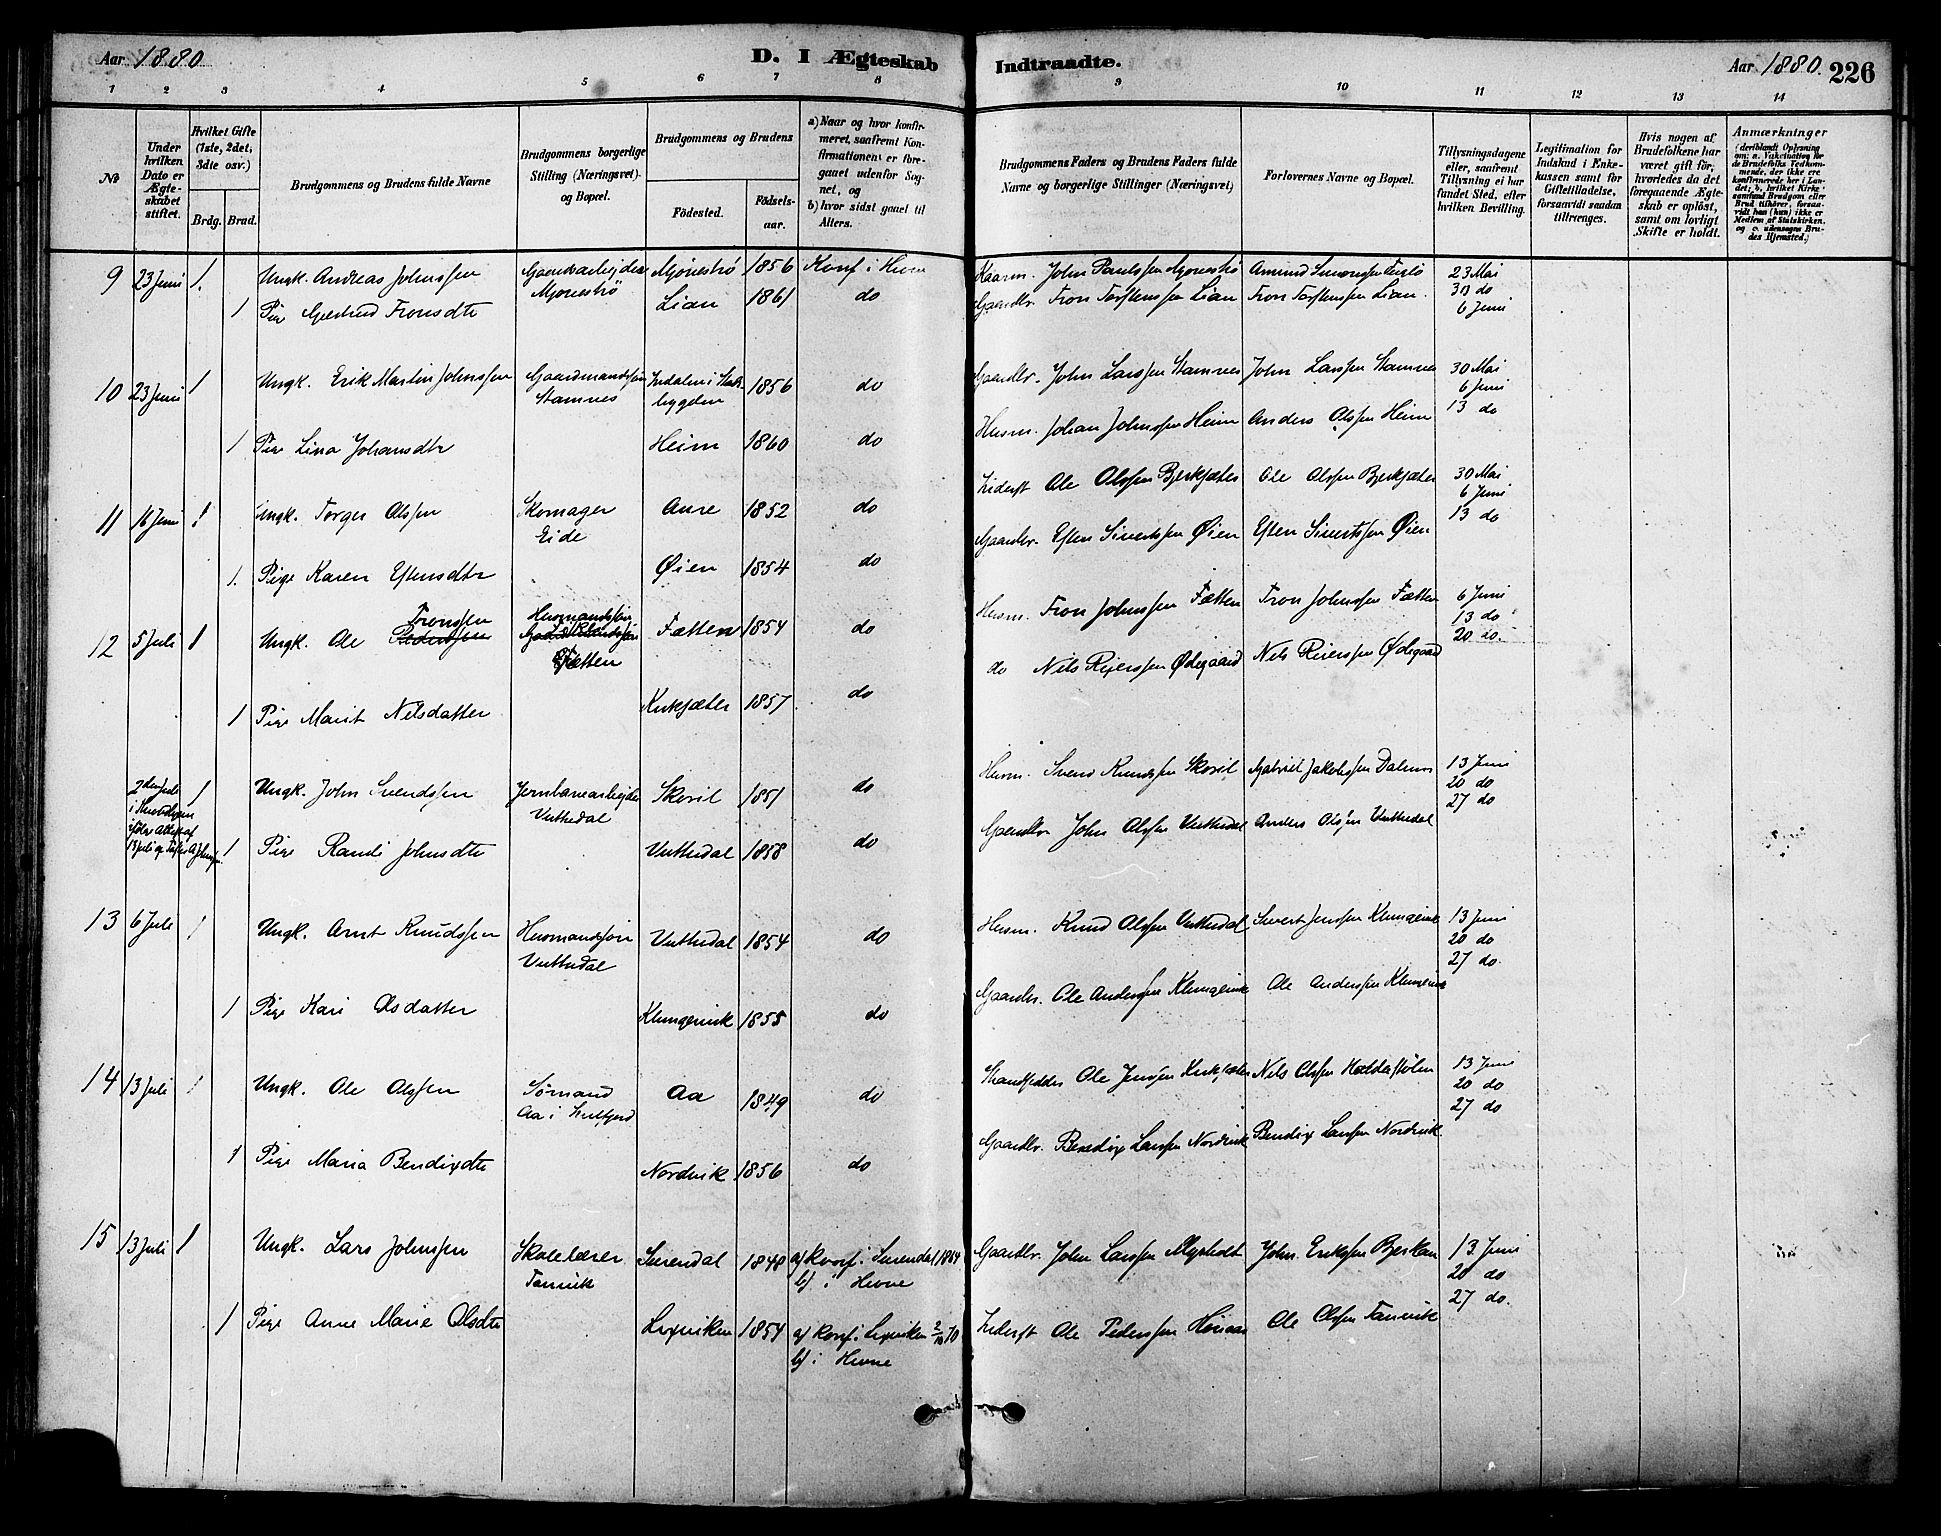 Aar 1880
D. I Ægteskab Indtraadte.
Aar 1880. 226
1 2 3 4 5 6 7 8 9 10 11 12 13 14
No
Under hvilken Dato er Ægteskabet stiftet.
Hvilket Gifte (1ste, 2det, 3die osv.)
Brdg. Brud.
Brudgommens og Brudens fulde Navne
Brudgommens borgerlige Stilling (Næringsvei) og Bopæl.
Brudgommens og Brudens
Födested. Födselsaar.
a) Naar og hvor konfirmeret, saafremt Konfirmationen er foregaaet udenfor Sognet, og
b) hvor sidst gaaet til Alters.
Brudgommens Faders og Brudens Faders fulde Navne og borgerlige Stillinger (Næringsvei)
Forlovernes Navne og Bopæl.
Tillysningsdagene eller, saafremt Tillysning ei har fundet Sted, efter hvilken Bevilling.
Legitimation for Indskud i Enkekassen samt for Giftetilladelse, forsaavidt saadan tiltrænges.
Hvis nogen af Brudefolkene har været gift för, hvorledes da det foregaaende Ægteskab er oplöst, samt om lovligt Skifte er holdt.
Anmærkninger
(deriblandt Oplysning om: a. Vakcination for de Brudefolks Vedkommende, der ikke ere konfirmerede her i Landet; b. hvilket Kirkesamfund Brudgom eller Brud tilhörer, forsaavidt han (hun) ikke er Medlem af Statskirken, og c. udensogns Brudes Hjemsted.)
9 23 Juni 1. Ungk. Andreas Johnssen Gaardsarbejder Mjønestrø 1856 Konf. i Hevne Kaarm. John Paulssen Mjonestrø 23 Mai
Mjonestrø
1 Pige Gjertrud Tronsdtr Lian 1861 do Gaardbr. Tron Torstenssen Lian Tron Torstenssen Lian. 30 do
6 Juni
10 23 Juni 1 Ungk. Erik Martin Johnssen Gaardmandssøn 1856 do Gaardbr. John Larssen Stamnes John Larssen Stamnes 30 Mai
Stamnes bygden 6 Juni
1 Pige Lina Johansdtr Heim 1860 do Husm. Johan Johnssen Heim Anders Olssen Heim 13 do
11 16 Juni 1 Ungk. Torger Olssen Skomager Aure 1852 do Inderst Ole Olssen Bjerksæter Ole Olssen Bjerksæter 30 Mai
Eide 6 Juni
1. Pige Karen Estensdtr Øien 1854 do Gaardbr. Esten Sivertssen Øien Esten Sivertssen Øien 13 do
12 5 Juli 1 Ungk. Ole Tronssen Husmandssøn Fætten 1854 do Husm. Tron Johnssen Fætten Tron Johnssen Fætten 6 Juni
Fætten 13 do
1 Pige Marit Nelsdatter Kirksæter 1857 do do Nels Reierssen Ødegaard Nels Reierssen Ødegaard 20 do.
2den Juli 1 Ungk. John Svendssen Jernbanearbejder Skoril 1851 do Husm. Svend Knudssen Skoril Gabriel Jakobssen Dalum 13 Juni
Vuttudal 20 do
1 Pige Randi Johnsdtr Vuttudal 1858 do Gaardbr John Olssen Vuttudal Anders Olssen Vuttudal 27 do
13 6 Juli 1 Ungk. Arnt Knudssen Husmandssøn Vuttudal 1854 do Husm. Knud Olssen Vuttudal Sivert Jenssen Klungervik 13 Juni
Vuttudal 20 do
1 Pige Kari Olsdatter Klungervik 1855 do Gaardbr. Ole Anderssen Klungervik Ole Anderssen Klungervik 27 do.
14 13 Juli 1 Ungk. Ole Olssen Sømand Aa 1849 do Strandsidder Ole Jenssen Kirksæter Nils Olssen 13 Juni
Aa i 20 do
1 Pige Maria Bendixdtr Nordvik 1856 do Gaardbr. Bendix Larssen Nordvik Bendix Larssen Nordvik 27 do
15 13 Juli 1 Ungk. Lars Johnssen Skolelærer Surendal 1848 a) Konf. i Surendal 1864 Gaardbr. John Larssen John Erikssen Bjerkan 13 Juni
Tannvik b) i Hevne 20 do
1 Pige Anne Marie Olsdtr Lexviken 1854 a) Konf. i Lexviken 2/10 70 Inderst Ole Pederssen Ole Olssen Tannvik 27 do.
b) i Hevne